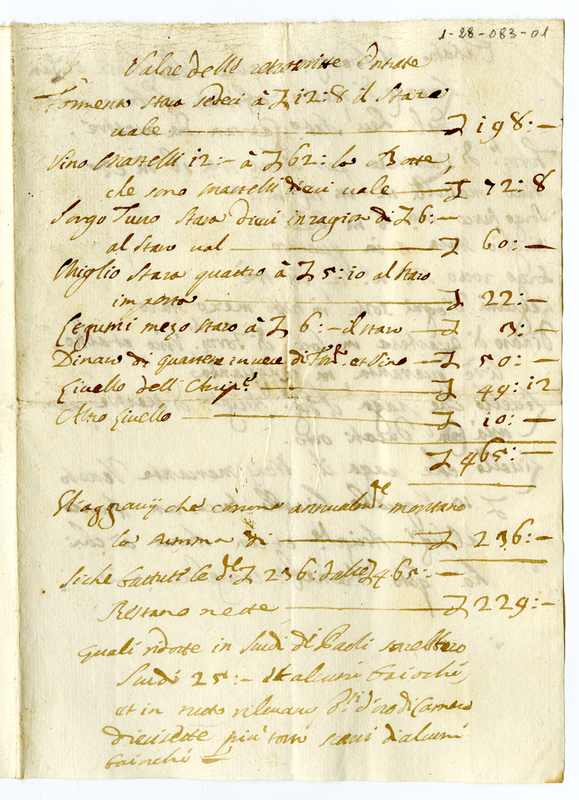 1-28-083-01
Valor delle retroscritte Entrate
Formento Stara sedeci à £ 12:8 il Staro
vale £ 198:—
Vino Mastelli 12:— à £ 62: la Botte,
che sono Mastelli dieci vale £ 72:8
Sorgo Turco Stara dieci in ragion di £ 6:—
al Staro val £ 60:—
Miglio Stara quattro à £ 5:10 al Staro
importa £ 22:—
Legumi mezo Staro à £ 6:— il staro £ 3:—
Dinaro di quartese invece di et Vino £ 50:—
Livello dell £ 49:12
Altro Livello £ 10:—
£ 465:—
Et aggravij che come annualmte montano
la summa di £ 236:—
Siche battute le de £ 236: dalle £ 465:—
Restano nette £ 229:—
quali ridotte in Scudi di Paoli
Scudi 25:— et alcuni baiochi
et in tutto rilevano d'oro di Camera
diecisette più tosto scarsi di alcuni
baiochi